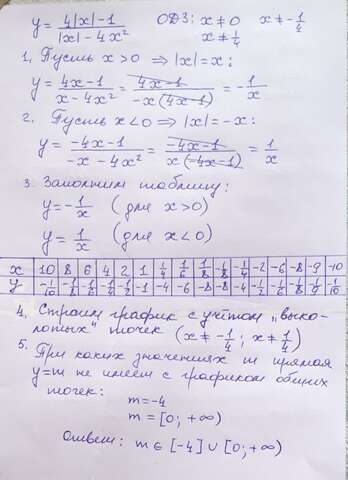 y = 4|x|-1 / |x|-4x² ОДЗ: x≠0 x≠-1/4
x≠1/4
1. Пусть x>0 ⇒ |x|=x:
y = 4x-1 / x-4x² = 4x-1 / -x(4x-1) = -1/x
2. Пусть x<0 ⇒ |x|=-x:
y = -4x-1 / -x-4x² = -4x-1 / x(-4x-1) = 1/x
3. Заполним таблицу:
y=-1/x (для x>0)
y=1/x (для x<0)
x 10 8 6 4 2 1 1/4 1/6 1/8 -1/8 -1/4 -2 -6 -8 -9 -10
y -1/10 -1/8 -1/6 -1/4 -1/2 -1 -4 -6 -8 -8 -4 -1/2 -1/6 -1/8 -1/9 -1/10
4. Строим график с учётом „выко-
лотых" точек (x≠-1/4; x≠1/4)
5. При каких значениях m прямая
y=m не имеет с графиком общих
точек:
m=-4
m=[0;+∞)
Ответ: m∈[-4]∪[0;+∞)